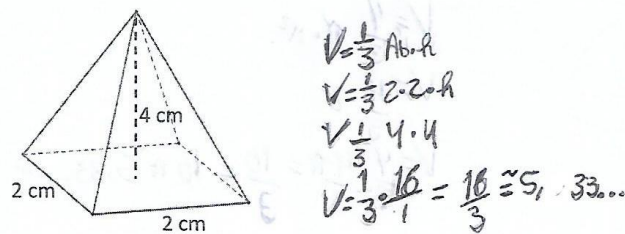 4 cm
2 cm
2 cm
V=1/3 Ab.h
V=1/3 2.2.h
V 1/3 4.4
V=1/3 . 16/1 = 16/3 ≅5, 33...